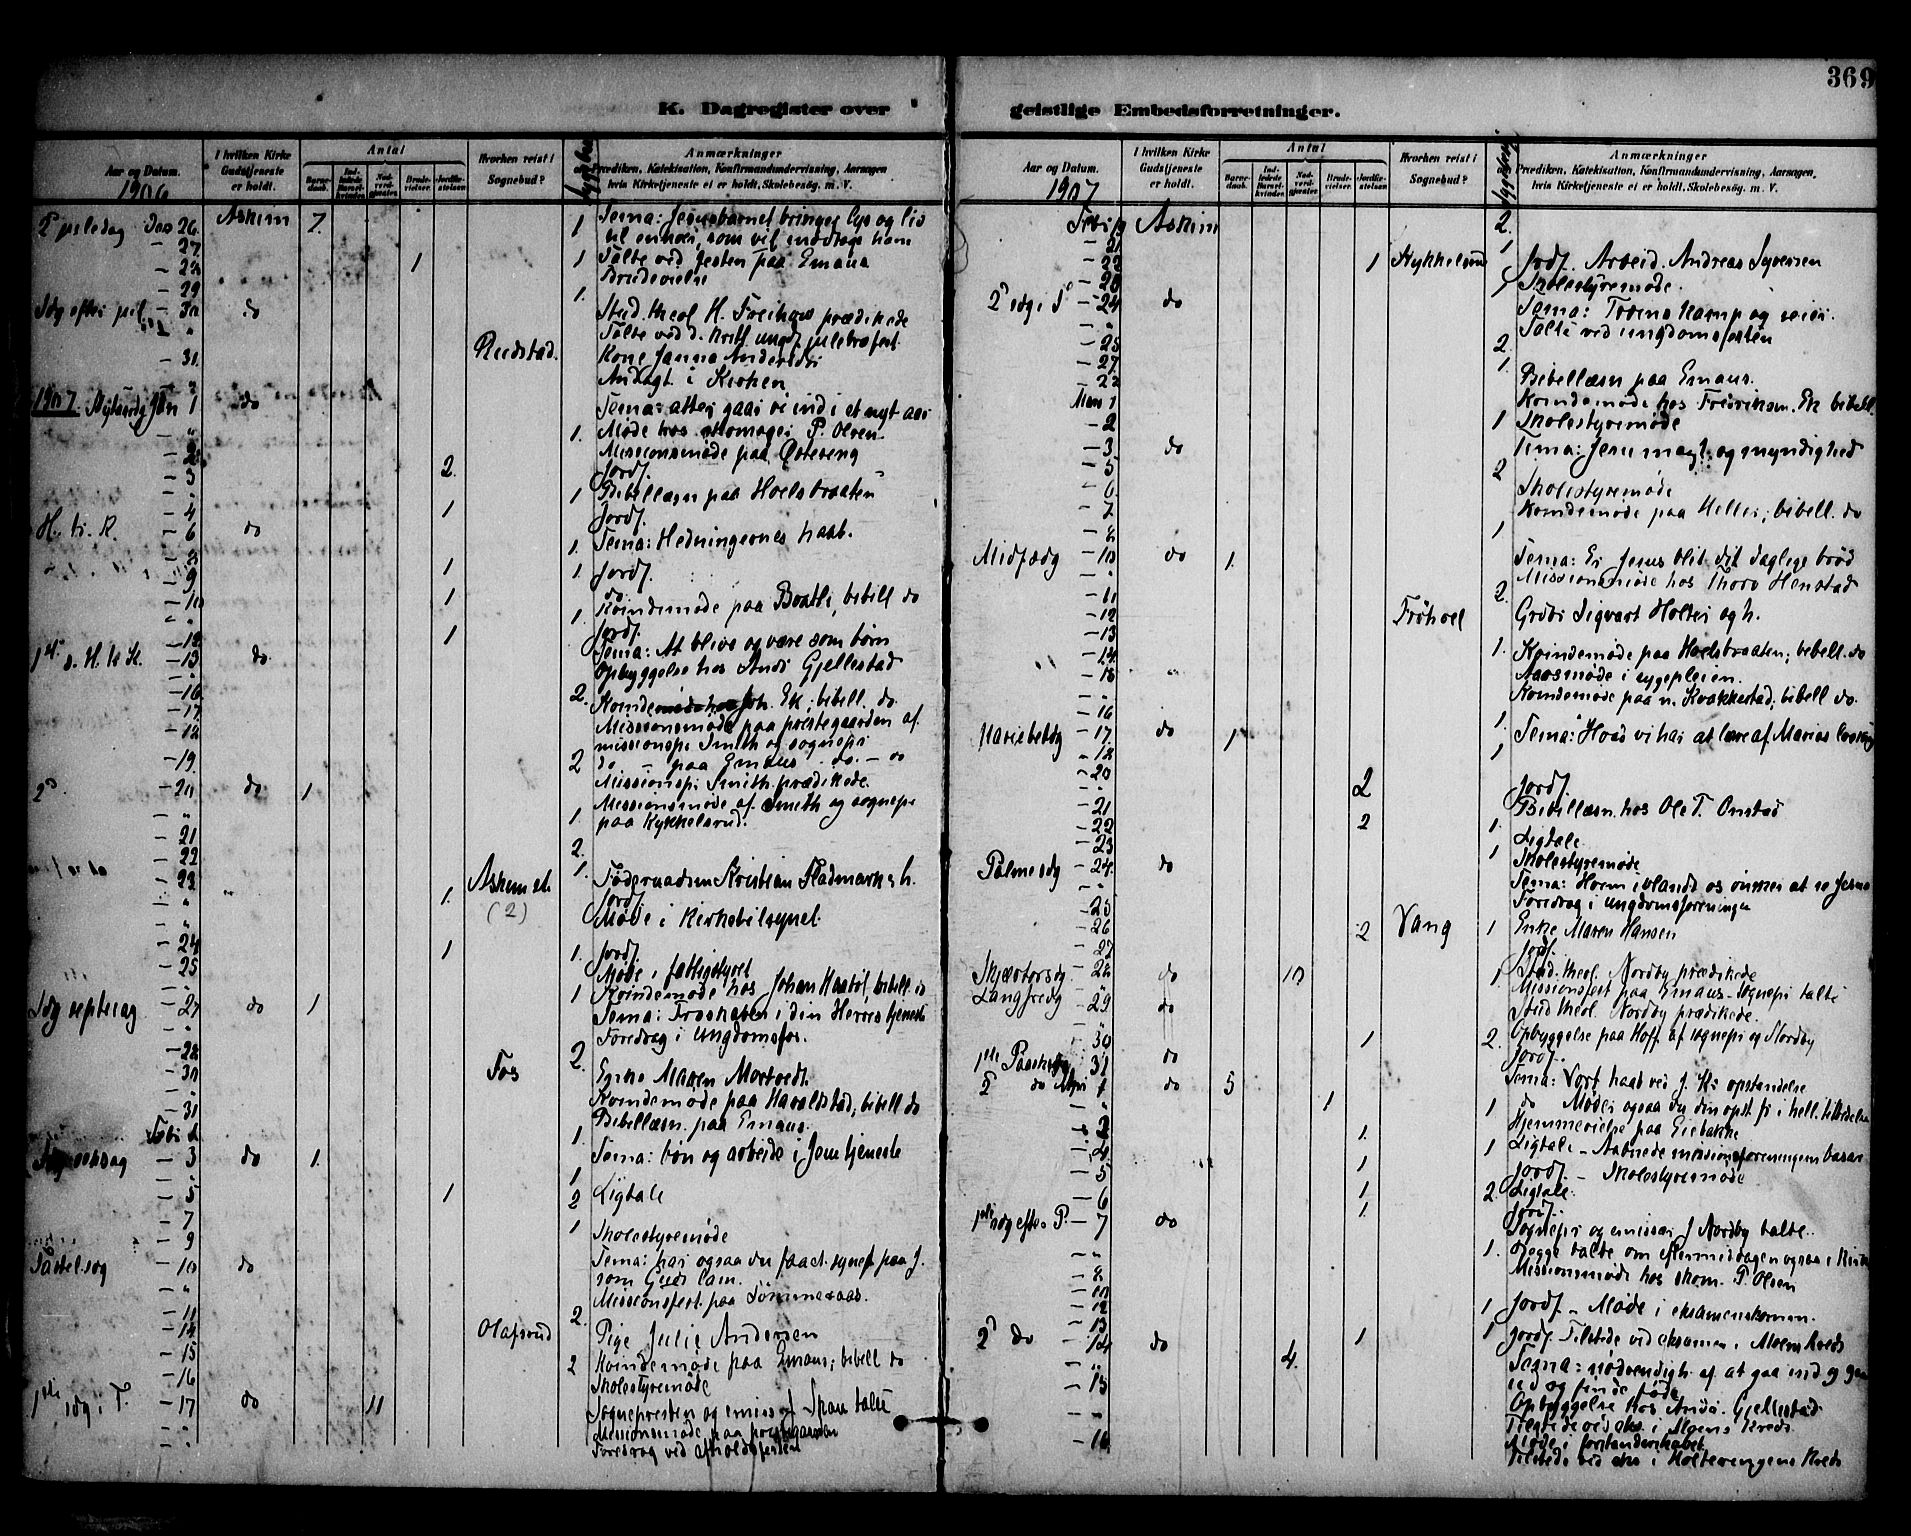 369
K. Dagregister over geistlige Embedsforretninger.
Aar og Datum.
1906
I hvilken Kirke Gudstjeneste er holdt.
Antal
Barnedaab.
Indledede Barselkvinder.
Nadverdgjæster.
Brudevielser.
Jordfæstelsen
Hvorhen reist i Sognebud?
Anmærkninger
Prædiken, Katekisation, Konfirmandundervisning, Aarsagen
hvis Kirketjeneste ei er holdt, Skolebesøg. m. V.
2 juledag Des 26. Askim 7. 1 Tema: Jesusbarnet bringer lys og liv
til enhver, som vil modtage ham
- 27. 1 Talte ved festen paa Emaus
- 28 1 Brudevielse
- 29 1.
Sdg efter jul - 30 do Stud. theol. H. prædikede
" Talte ved d. kristl. ungd. juletræfest
- 31. Rudstad. Kone Janna Andersen
Andagt i Kirken
1907 Nytaarsdg Jan 1 do Tema: atter gaar vi ind i et nyt aar
" 1. Møde hos skomager P. Olsen
Missionsmøde paa Østereng
- 3 2. Jordf.
1 Bibellæsn paa Hoelsbraaten
- 4 1 Jordf.
H. tr. K. - 6 do 1. Tema: Hedningernes haab.
- 8 1 1. Jordf.
- 9 do
- 10 1 1. Kvindemøde paa Braatli, bibell do
- 12 1 Jordf.
1ste s. H. tr K. - 13 do. Tema: At blive og være som børn
Opbyggelse hos Andr Gjellestad
- 16 2. Kvindemøde hos Joh. Ek, bibell. do
- 17 Missionsmøde paa prestegaarden af
- 18 missionspr. Smith og sognepr
- 19. 2 do - paa Emaus - do. - do
2d - 20 do 1 Missionspr. Smith prædikede
" 1. Missionsmøde af Smith og sognepr
- 21 paa Kykkelsrud.
- 22 2.
- 23 " Askim st. 1. Føderaadsm Kristian Fladmark & h.
" 1. (2) Jordf.
" Møde i kirketilsynet.
- 24 1 1. Jordf.
- 25 Møde i fattigstyret
1 Kvindemøde hos Johan bibell do
Sdg septuag - 27 do 1 Tema: Troskaben i din Herres tjeneste
" Foredrag i Ungdomsfor.
- 28 2.
- 30 Fos Enke Maren Mortvedt.
Kvindemøde paa Haraldstad, bibell do
- 31 Bibellæsn. paa Emaus.
Febr 2 1.
- 3 do 1. Tema: bøn og arbeide i Jesu tjeneste
1
- 5 1 2 Ligtale
- 7 1 Skolestyremøde
- 9
Fastelsdg - 10 do Tema: har ogsaa du faaet synet paa J.
som Guds lam.
" Missionsfest paa Tømmeraas.
- 11 2.
- 14 Olafsrud Pige Julie Andersen
- 15 2 Kvindemøde paa Emaus; bibell do
- 16 Skolestyremøde
1ste sdg i F. - 17 do 11 Sognepresten og emiss. J talte
" Missionsmøde paa prestegaarden
- Foredrag ved afholdsfesten
Aar og Datum.
1907
I hvilken Kirke Gudstjeneste er holdt.
Antal
Barnedaab.
Indledede Barselkvinder.
Nadverdgjæster.
Brudevielser.
Jordfæstelsen
Hvorhen reist i Sognebud?
Anmærkninger
Prædiken, Katekisation, Konfirmandundervisning, Aarsagen,
hvis Kirketjeneste ei er holdt, Skolebesøg. m. V.
Febr Askim 2.
- 21 1
- 22 1 Kykkelsrud Jordf. Arbeid. Andreas Syversen
- 1 Skolestyremøde.
2d sdg i F - 24 do Tema: Troens kamp og seier.
" Talte ved ungdomsfesten
- 25 2.
- 27 1. Bibellæsn paa Emaus.
Mars 1 Kvindemøde hos Fredriksen Ek bibell
- 2 1 Skolestyremøde
- 3 do Tema: Jesu magt og myndighed
- 5 2
- 6 Skolestyremøde
- 7 Kvindemøde paa Heller; bibell. do
- 8 1
Midfasdg - 10 do 1. Tema: Er Jesus blit dit daglige brød
" Missionsmøde hos Thorv Henstad
- 11 2.
- 12 Frøhoel Grdbr Sigvart Holter og h.
- 13
- 14 1. Kvindemøde paa Hoelsbraaten; bibell. do
- 15 " Aarsmøde i sygepleien.
" Kvindemøde paa n. Kvakkestad; bibell do.
- 16 1.
Mariebdsdg - 17 do 1 Tema: Hvad vi har at lære af Marias
- 18 1
- 20 2 Jordf.
- 21 Bibellæsn. hos Ole T. Onstad
- 22 2 1. Ligtale.
- 23 1 Skolestyremøde
Palmesdg - 24. do Tema: Hvem iblandt os ønsker at se Jesus
" Foredrag i Ungdomsforeningen
- 25
- 26 2 Vang 1 Enke Maren Hansen
- 27 Jordf
Skjærtorsdg - 28 do 10 1 Stud. theol. Nordby prædikede
" Missionsfest paa Emaus - sognepr talte
Langfredg - 29 do Stud theol. Nordby prædikede.
" Opbyggelse paa Hoff af sognepr og Nordby
- 30 1 2. Jordf.
1ste Paaskedg 31 do Tema: Vort haab ved J. K's opstandelse
2 do April 1 do 5 do Møder ogsaa du den opst fr i hell.
" 1 1 Hjemmevielse paa
- 2 1. Ligtale - Aabnede missionsforeningens basar
- 4 1 1 Jordf. - Skolestyremøde
- 5 1 2. Ligtale.
- 6 1. Jordf.
1ste sdg efter P. - 7 do Sognepr og emissær J Nordby talte.
" 1. Begge talte om eftermiddagen ogsaa i
- 8 Missionsmøde hos skom. P. Olsen
- 10
- 12 1 Jordf - Møde i eksamenskomm.
- 13 1 1 Jordf. Tilstede ved eksamen i Moens kreds
2d do - 14 do 4. Tema: nødvendigh. af at gaa ind og gaa
ud og finde føde
" Opbyggelse hos Andr. Gjellestad
- 15 Tilstede ved eks. i Moens kreds.
" Møde i forstanderskabet
- 16 Tilstede ved eks i Holterengens kreds